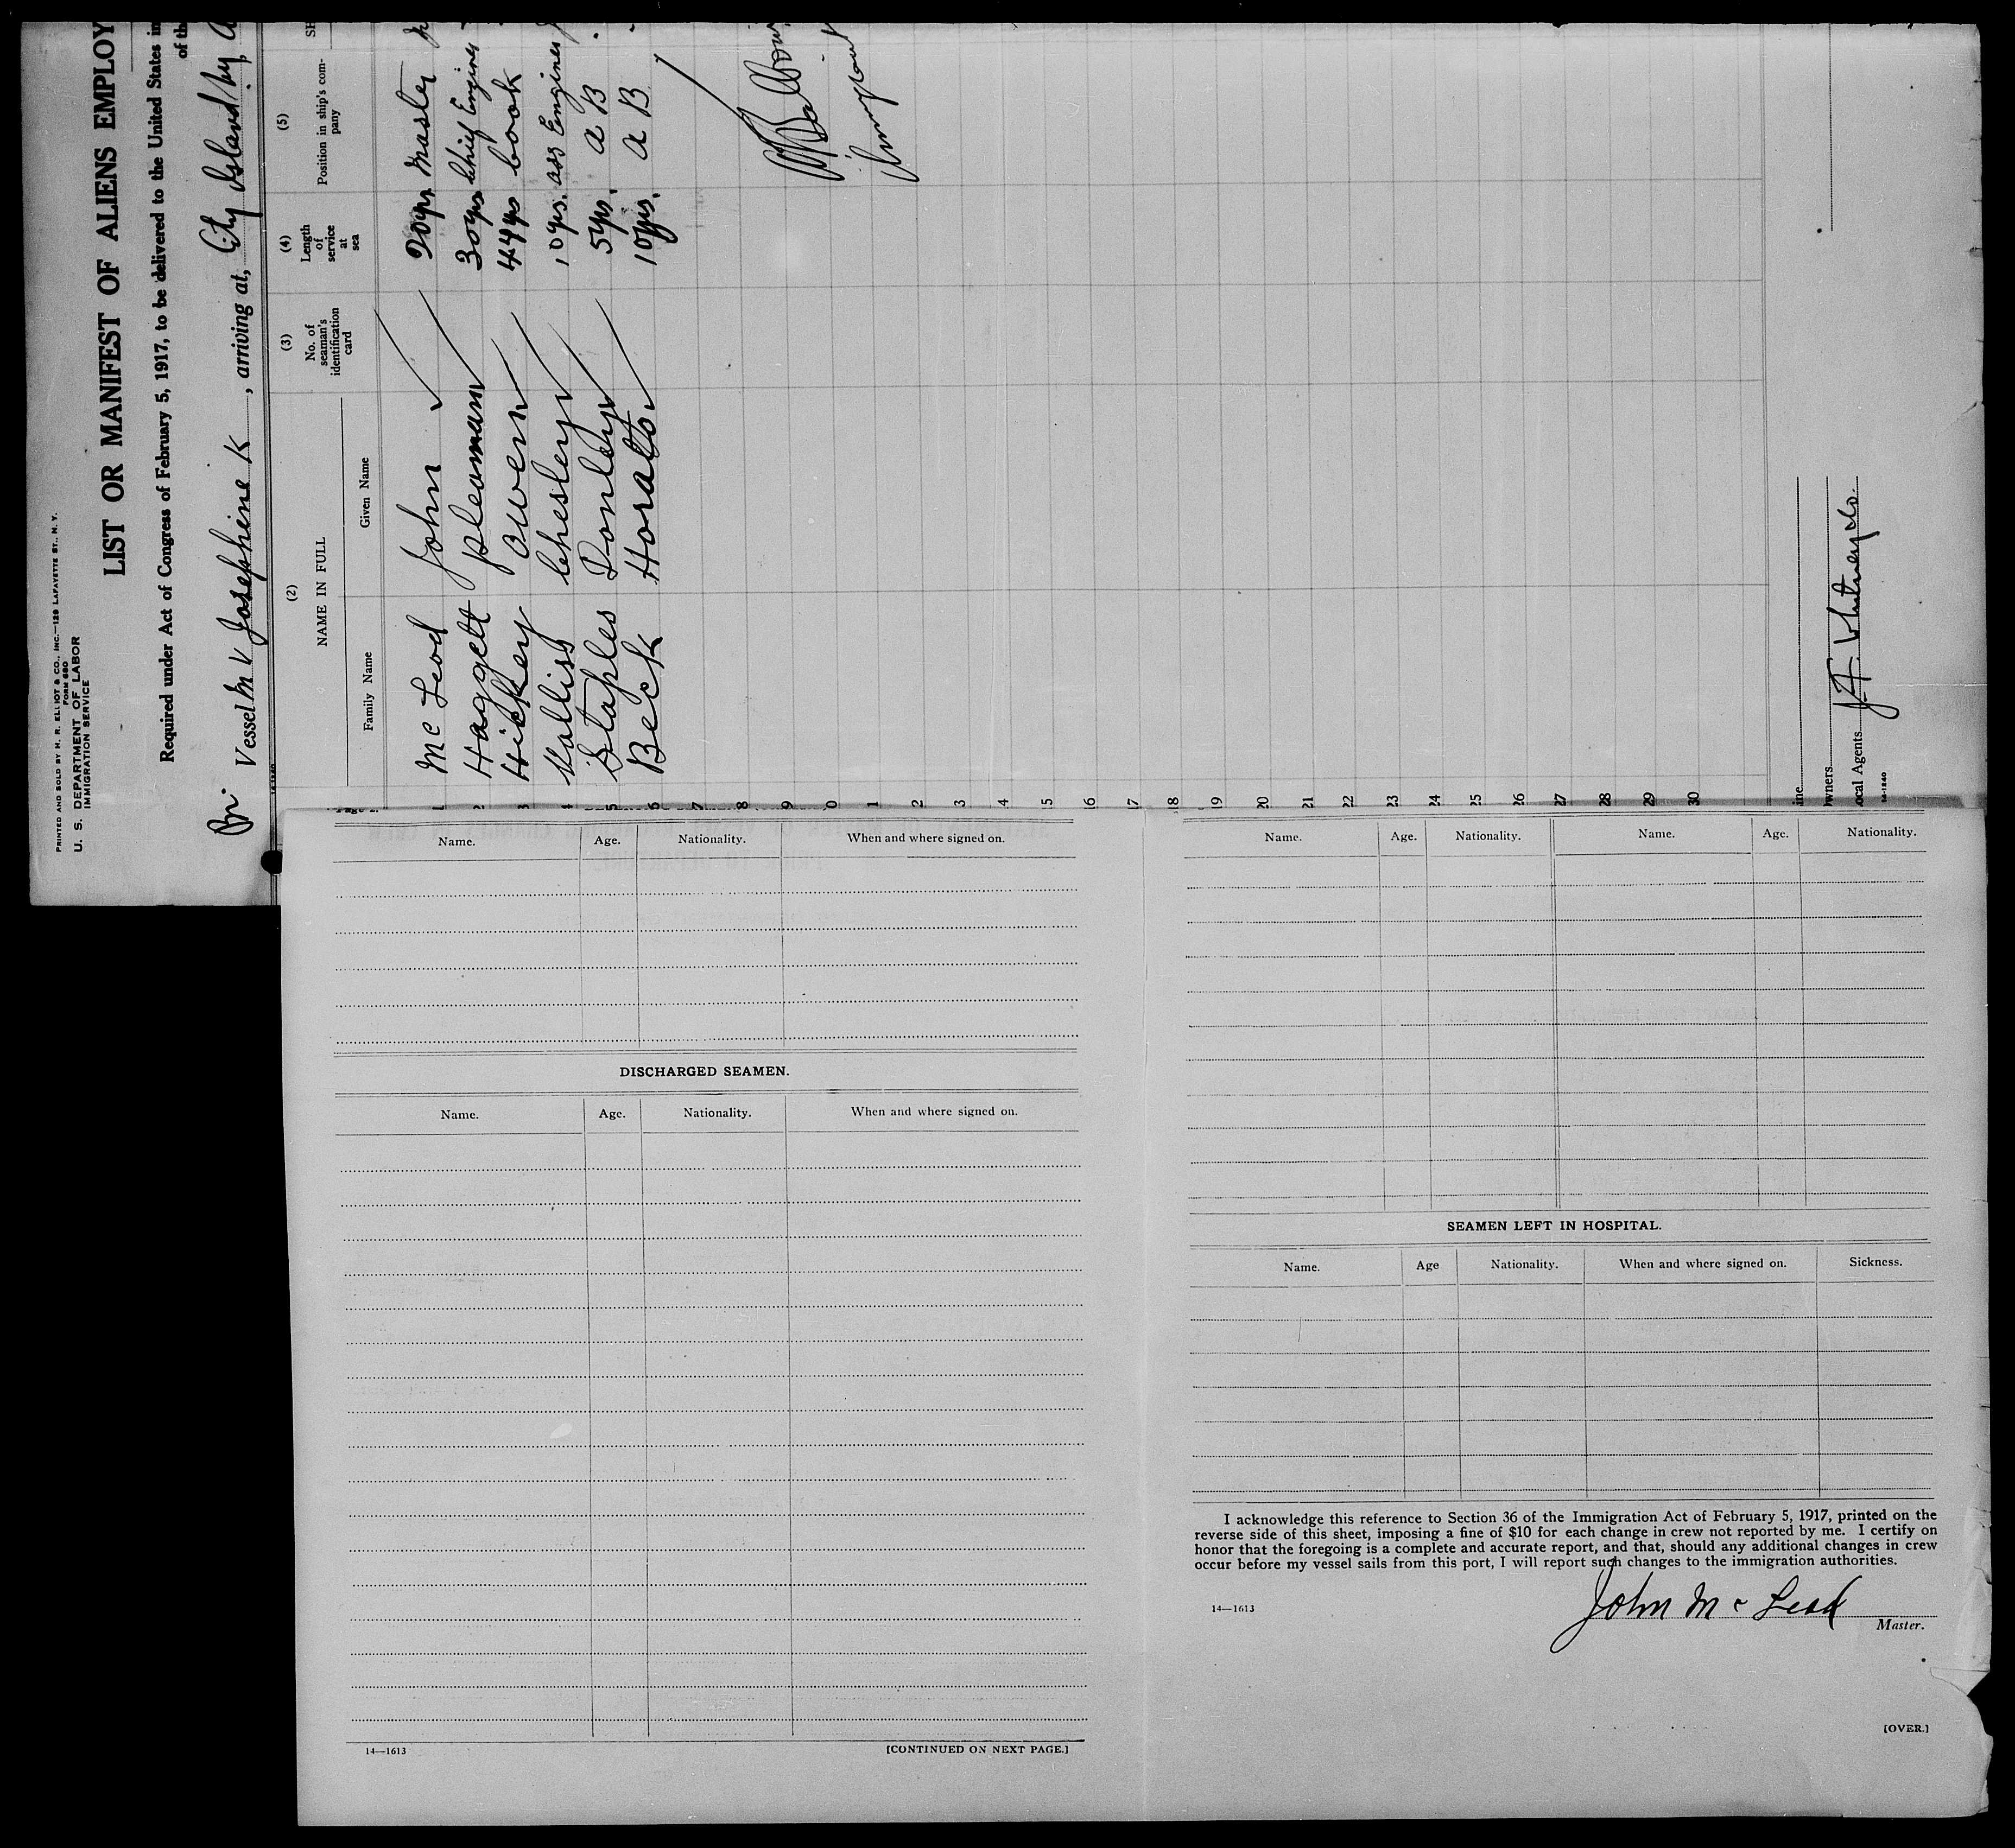 PRINTED AND SOLD BY H. R. ELLIOT & CO., INC.—129 LAFAYETTE ST., N. Y.
FORM 680
U. S. DEPARTMENT OF LABOR
IMMIGRATION SERVICE
LIST OR MANIFEST OF ALIENS EMPLOY
Required under Act of Congress of February 5, 1917, to be delivered to the United States im
of th
Br. Vessel M V Josephine K, arriving at, City Island N.y.
(2) (3) (4) (5)
NAME IN FULL No. of seaman's identification card Length of service at sea Position in ship's company
Family Name Given Name
1 Mc Leod John 20 yrs Master
2 Haggett Pleamann 30 yrs Chief Engineer
3 Hickey Owen 44 yrs Cook
4 Valliss Chesley 10 yrs. ass Engineer
5 Staples Donley 5 yrs. A B
6 Beck Horatto 10 yrs. A B
7
8
9
0
1
2
3
4
15
16
17
18
19
20
21
22
23
24
25
26
27
28
29
30
ine
wners
ocal Agents J. A. Whitney Co.
14-1240
Name. Age. Nationality. When and where signed on.
DISCHARGED SEAMEN.
Name. Age. Nationality. When and where signed on.
14—1613 [CONTINUED ON NEXT PAGE.]
Name. Age. Nationality. Name. Age. Nationality.
SEAMEN LEFT IN HOSPITAL.
Name. Age Nationality. When and where signed on. Sickness.
I acknowledge this reference to Section 36 of the Immigration Act of February 5, 1917, printed on the
reverse side of this sheet, imposing a fine of $10 for each change in crew not reported by me. I certify on
honor that the foregoing is a complete and accurate report, and that, should any additional changes in crew
occur before my vessel sails from this port, I will report such changes to the immigration authorities.
14—1613 John Mc Leod
Master.
[OVER.]